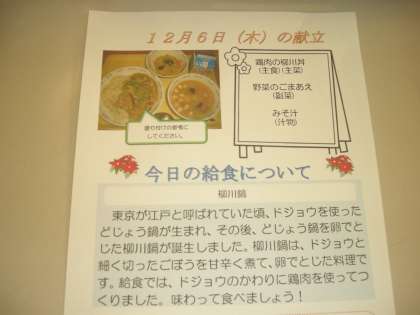 12月6日（木）の献立
鶏肉の柳川丼
（主食）（主菜）
野菜のごまあえ
（副菜）
みそ汁
（汁物）
盛り付けの参考に
してください。
今日の給食について
柳川鍋
東京が江戸と呼ばれていた頃、ドジョウを使った
どじょう鍋が生まれ、その後、どじょう鍋を卵でと
じた柳川鍋が誕生しました。柳川鍋は、ドジョウと
細く切ったごぼうを甘辛く煮て、卵でとじた料理で
す。給食では、ドジョウのかわりに鶏肉を使ってつ
くりました。味わって食べましょう！